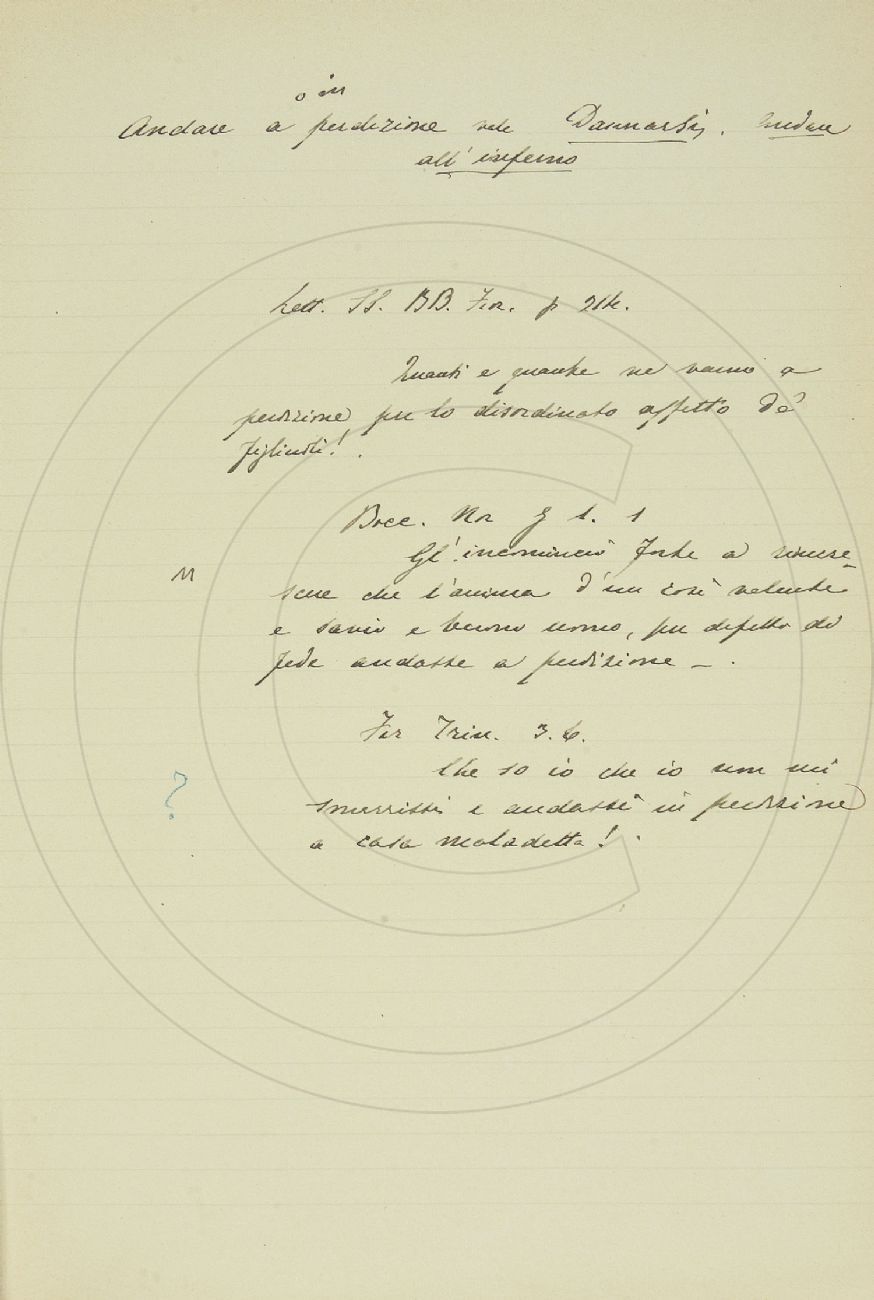 o in
Andare a perdizione vale Dannarsi, Andare
all' inferno
Lett. SS. BB. Fior. p 214.
Quanti e quante ne vanno a
perdizione, per lo disordinato affetto de'
figliuoli!
Bocc. Nov g 1. 1
Gl' incominciò forte a rincre-
N
scere che l'anima d'un così valente
e savio e buono uomo, per difetto di
fede andasse a perdizione –.
Fir Trin. 3. 6.
Che so io che io non mi
?
smarrissi e andassi in perdizione
a casa maladetta!